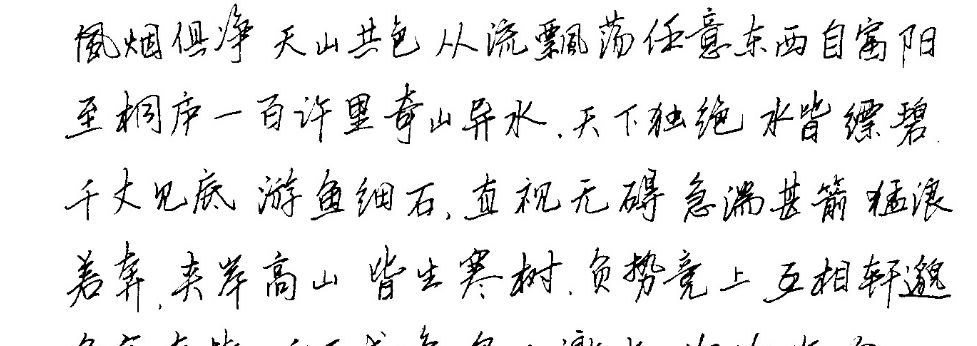 風烟俱净 天山共色 从流飘荡任意东西自富阳
至桐庐一百许里奇山异水，天下独绝 水皆缥碧
千丈见底 游鱼细石，直视无碍 急湍甚箭 猛浪
若奔，夹岸高山 皆生寒树，负势竞上 互相轩邈